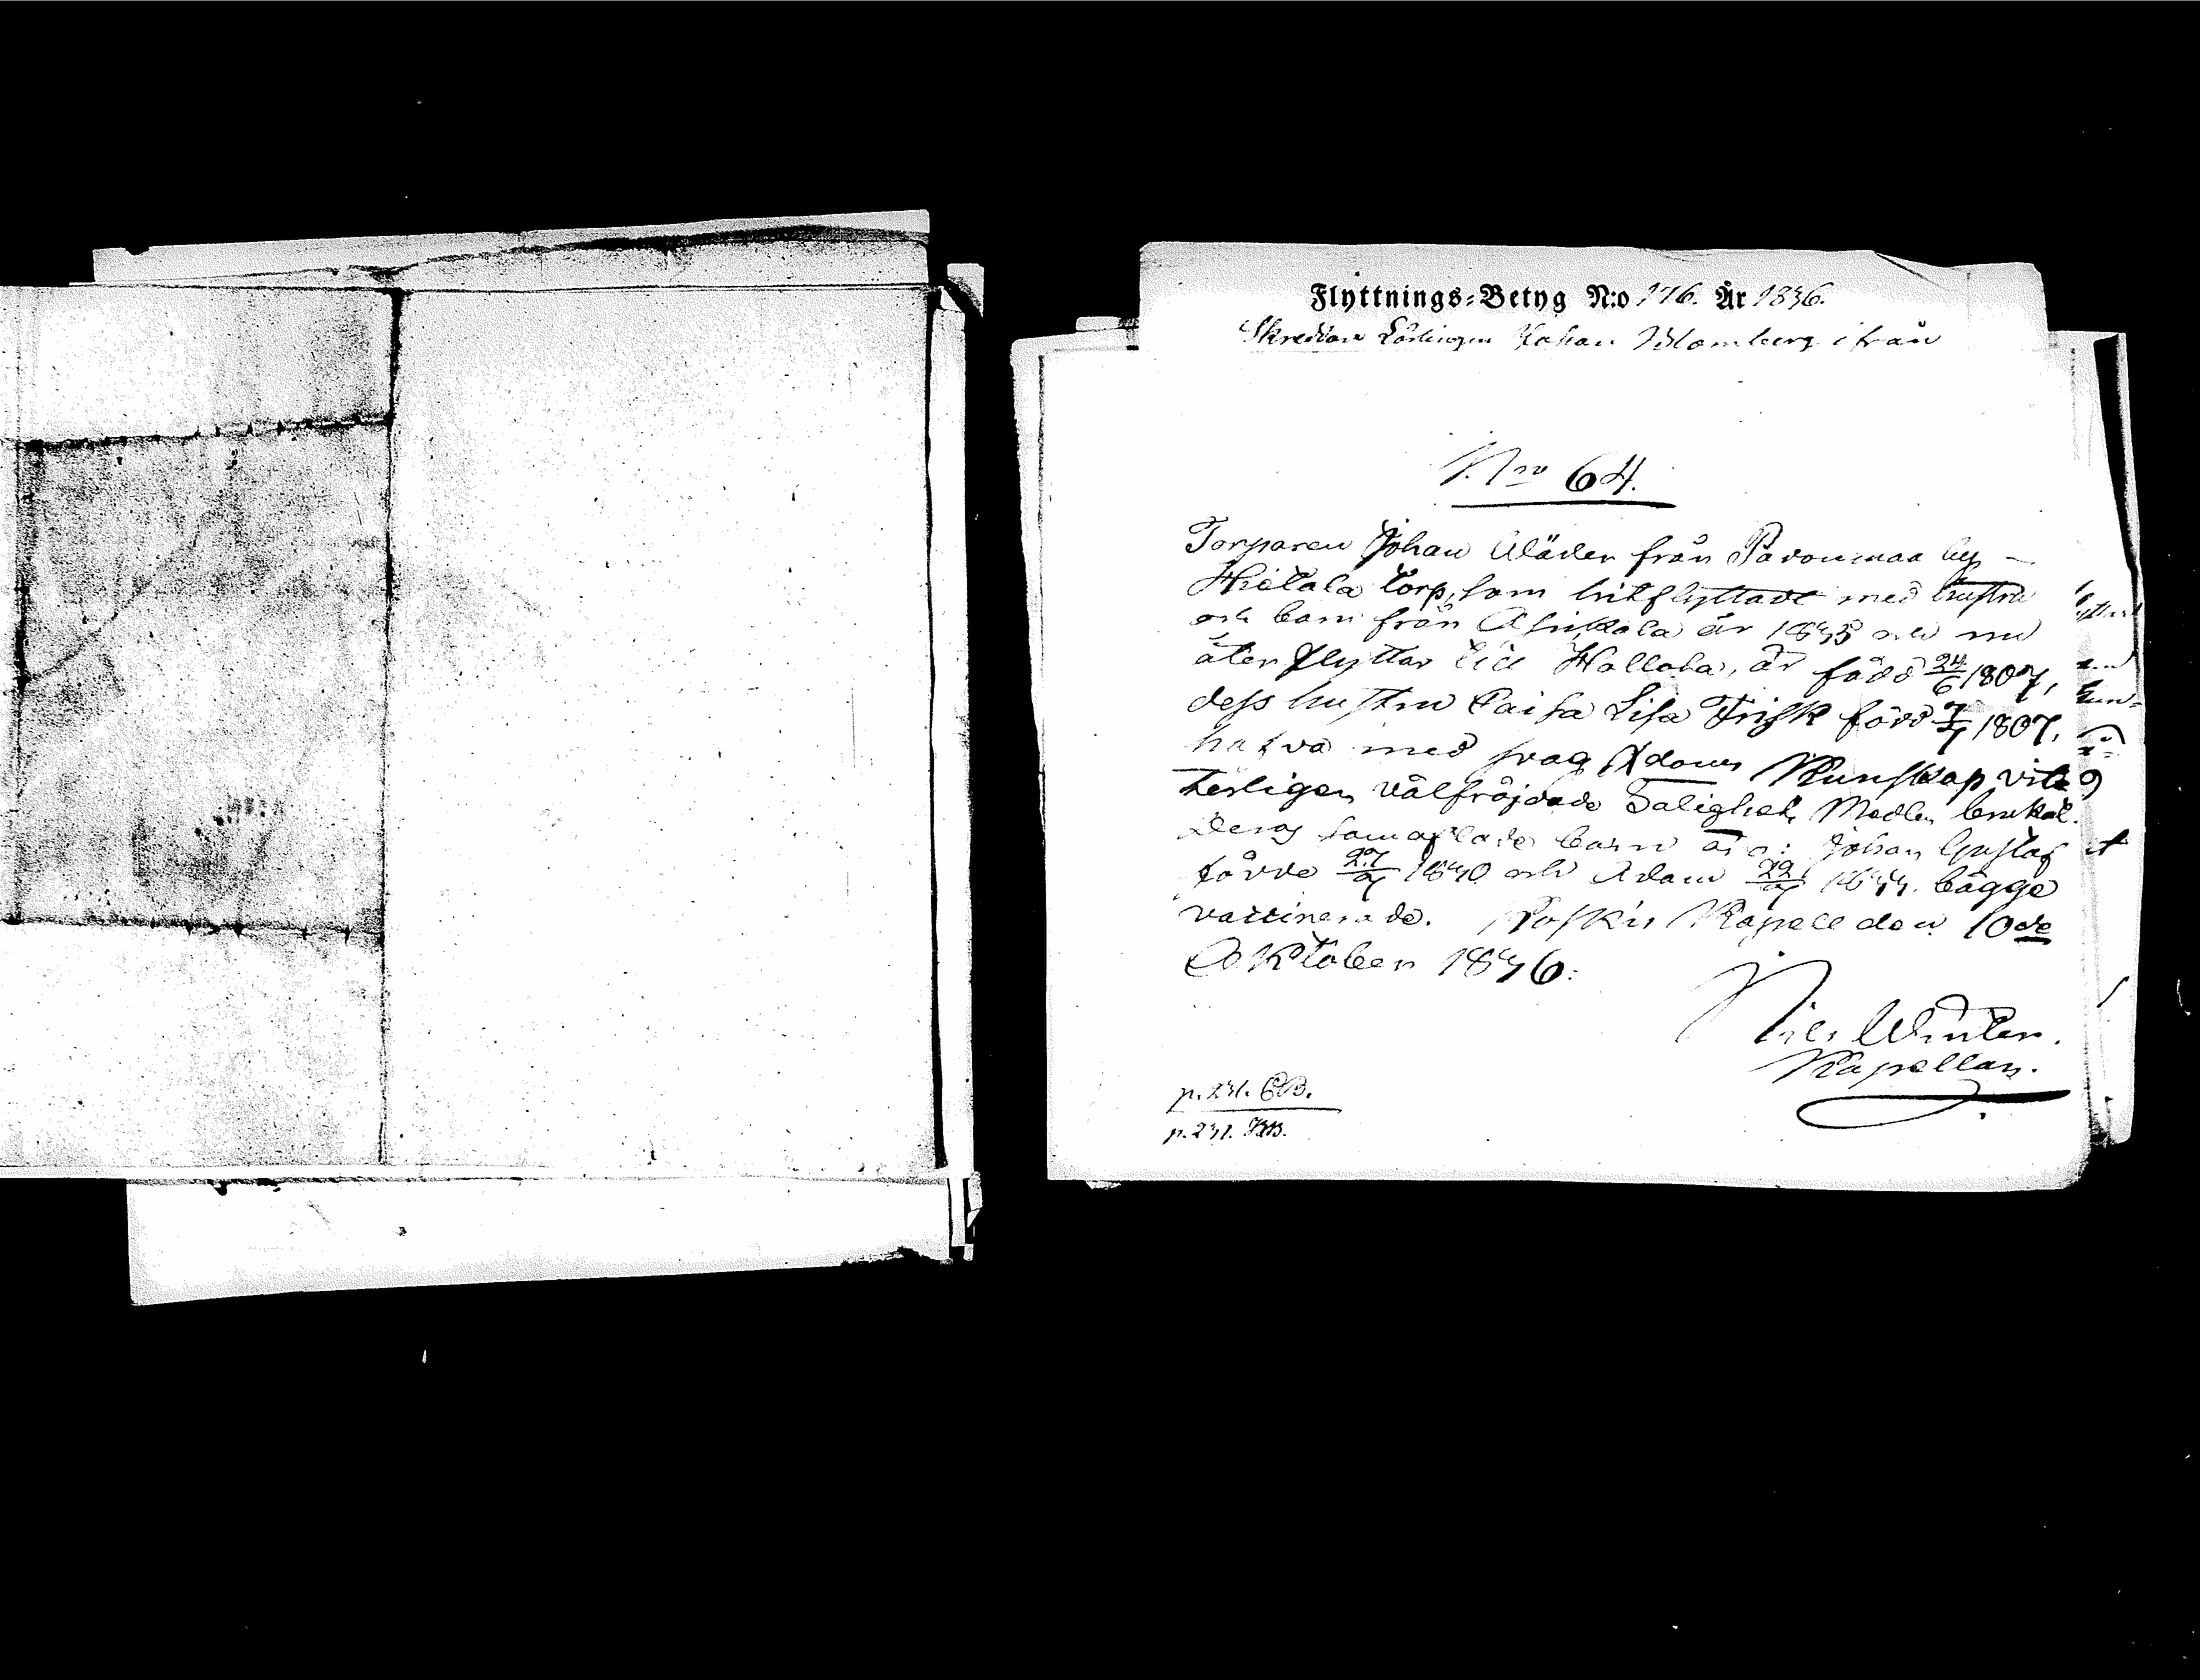 Flyttnings-Betyg N:o 176. År 1846.
Skreddare Lärlingen Johan Blomberg ifrån
Nro 64.
Torparen Johan Wäder från by –
Hietala torp, som hitflyttade med hustru
och barn från Asikkala år 1845 och nu
åter flyttar till Hollola, är född 24/6 1807,
dess hustru Caisa Lisa Frisk född 1807,
hafva med svag Xdoms Kunskap vite
terligen välfräjdade Salighets Medlen brukat.
Deras samaflade barn äro: Johan Gustaf
födde 27/ 1840 och Adam 22/ 1844. bägge
vaccinerade. Koskis Kapell den 10de
Oktober 1846:
Nils Winter.
Kapellan.
p. 241. CB.
p. 241. KB.